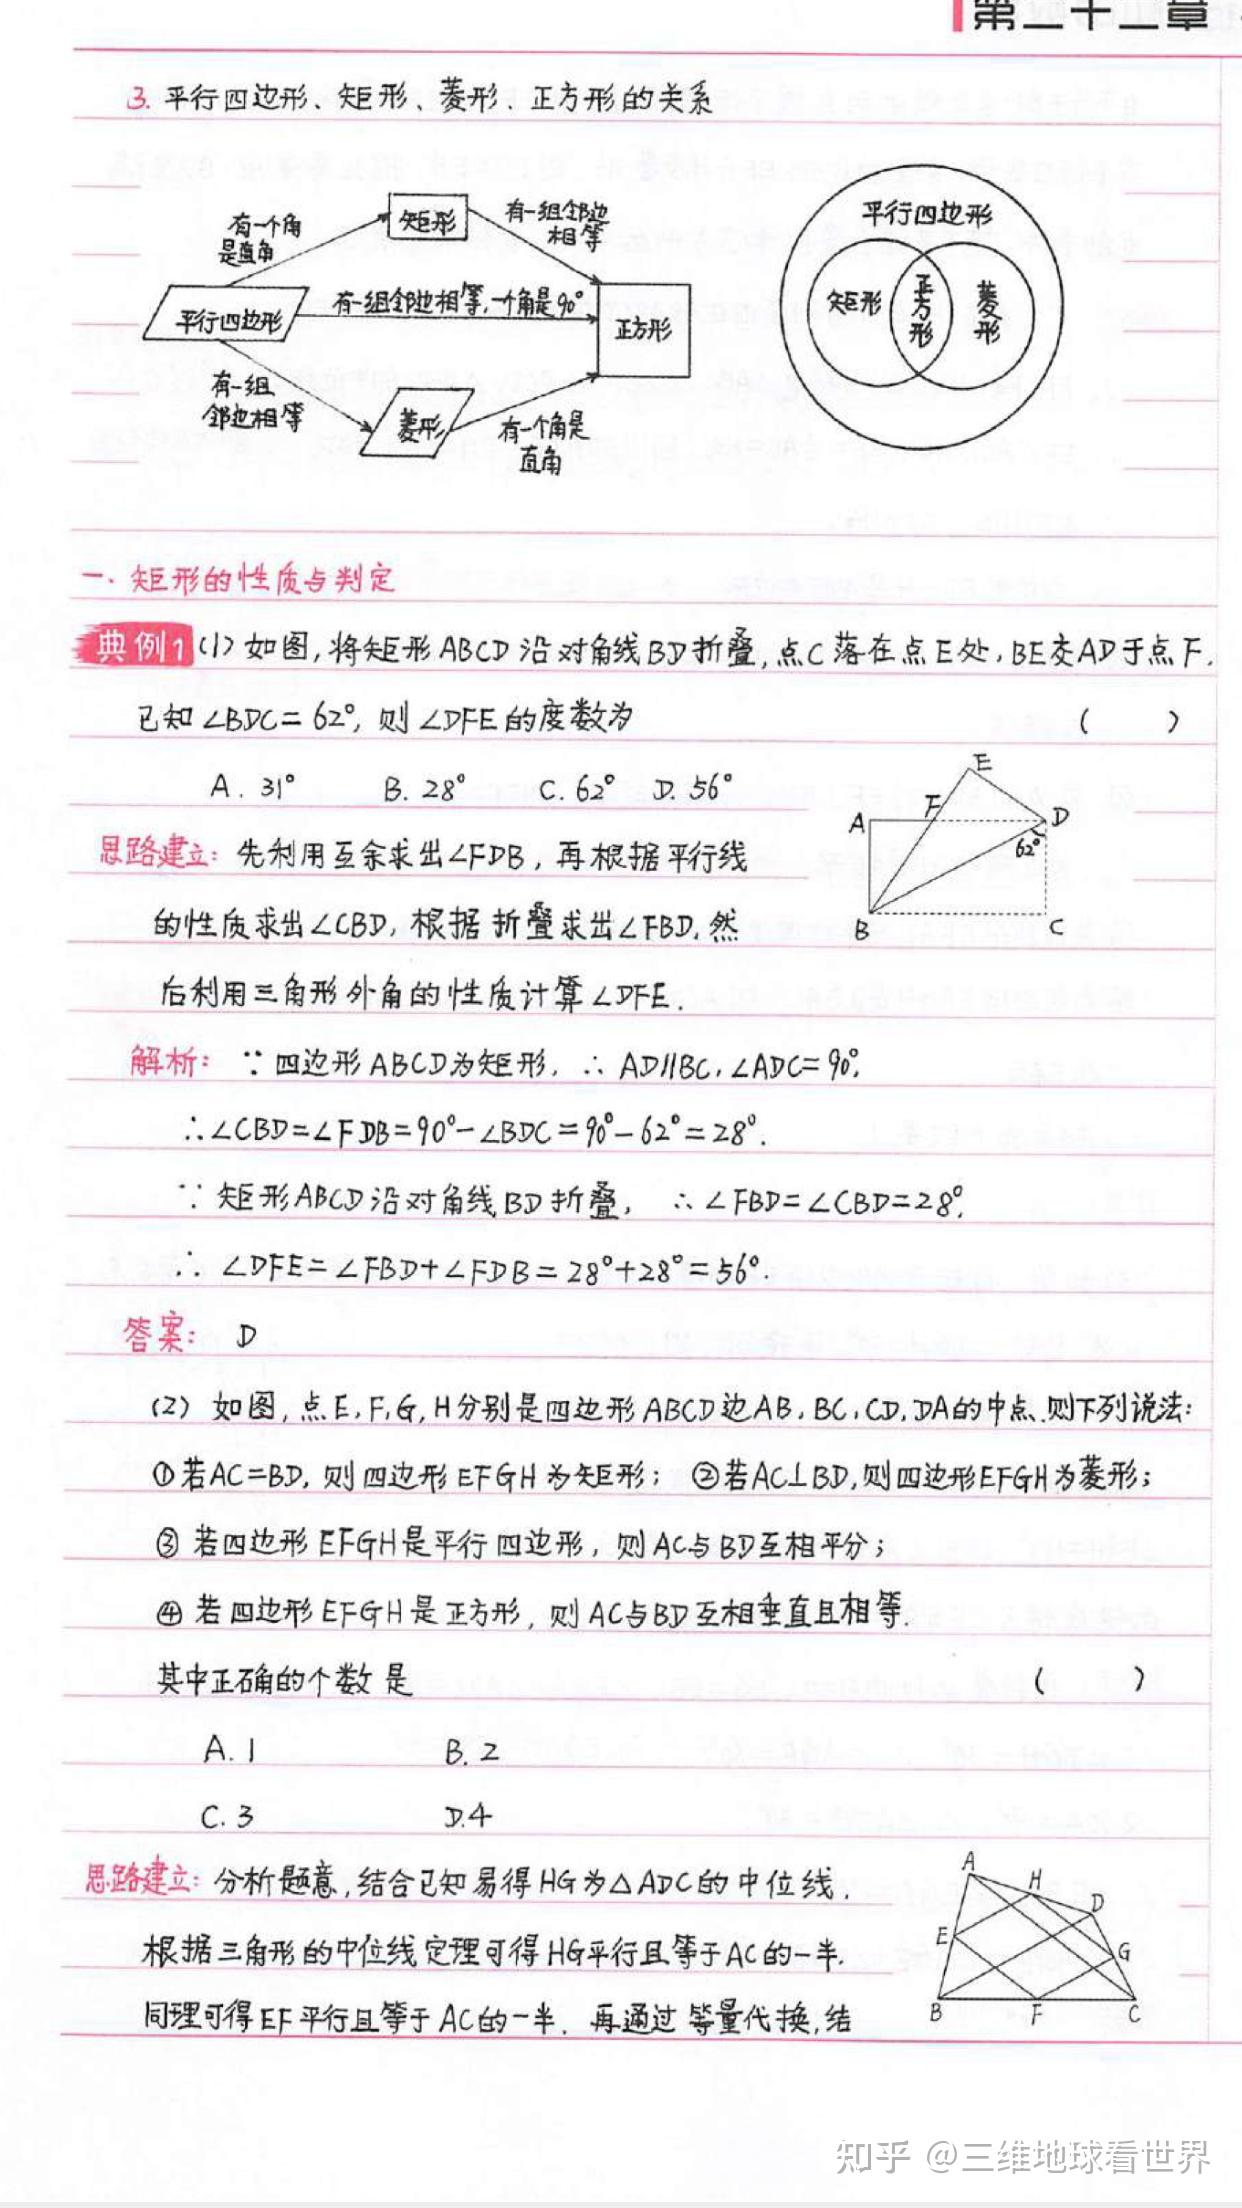 第二十二章
3. 平行四边形、矩形、菱形、正方形的关系
有一个角
是直角
矩形
有一组邻边
相等
平行四边形
有一组邻边相等,一个角是90°
正方形
有一组
邻边相等
菱形
有一个角是
直角
平行四边形
矩形
正方形
菱形
一、矩形的性质与判定
典例1 (1) 如图,将矩形ABCD沿对角线BD折叠,点C落在点E处,BE交AD于点F.
已知∠BDC=62°,则∠DFE的度数为 ( )
A. 31° B. 28° C. 62° D. 56°
E
A F D
62°
B C
思路建立: 先利用互余求出∠FDB,再根据平行线
的性质求出∠CBD,根据折叠求出∠FBD,然
后利用三角形外角的性质计算∠DFE.
解析: ∵四边形ABCD为矩形, ∴AD∥BC,∠ADC=90°,
∴∠CBD=∠FDB=90°-∠BDC=90°-62°=28°.
∵矩形ABCD沿对角线BD折叠, ∴∠FBD=∠CBD=28°,
∴∠DFE=∠FBD+∠FDB=28°+28°=56°.
答案: D
(2) 如图,点E,F,G,H分别是四边形ABCD边AB,BC,CD,DA的中点,则下列说法:
①若AC=BD,则四边形EFGH为矩形; ②若AC⊥BD,则四边形EFGH为菱形;
③若四边形EFGH是平行四边形,则AC与BD互相平分;
④若四边形EFGH是正方形,则AC与BD互相垂直且相等.
其中正确的个数是 ( )
A. 1 B. 2
C. 3 D. 4
思路建立: 分析题意,结合已知易得HG为△ADC的中位线,
根据三角形的中位线定理可得HG平行且等于AC的一半.
同理可得EF平行且等于AC的一半.再通过等量代换,结
A
H
D
E
G
B F C
知乎 @三维地球看世界